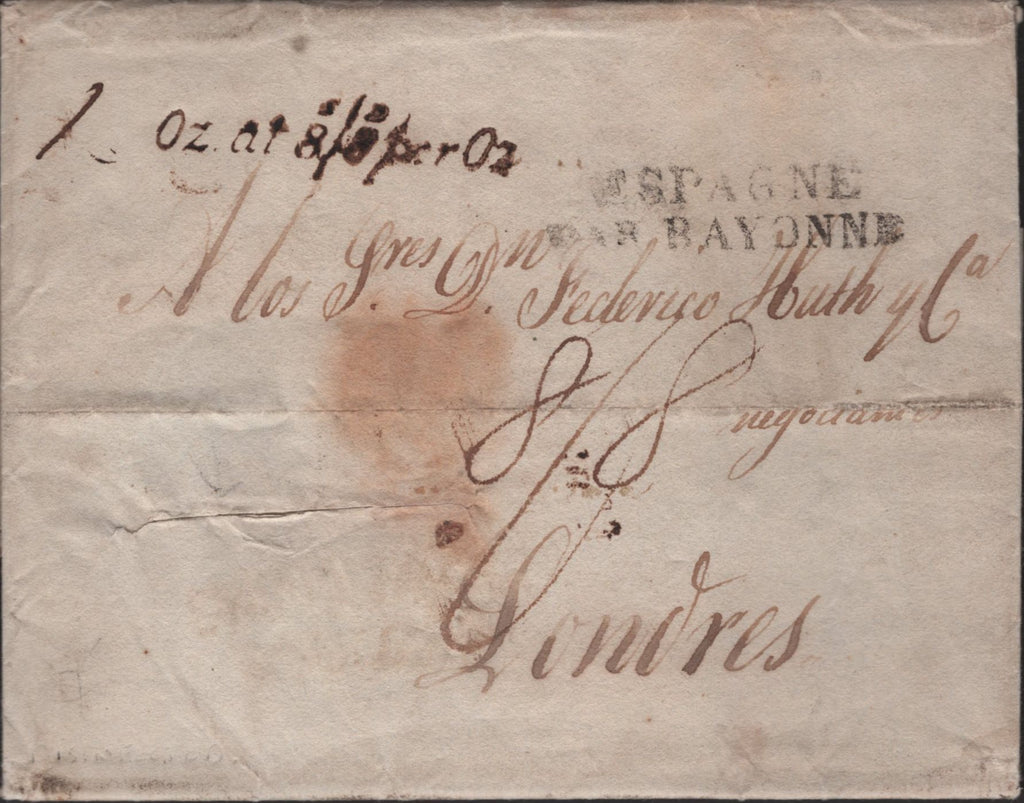 1 Oz. at 8/8 per Oz
ESPAGNE
PAR BAYONNE
A los Sres. Dn. Federico Huth y Ca
8/8
negociantes
Londres